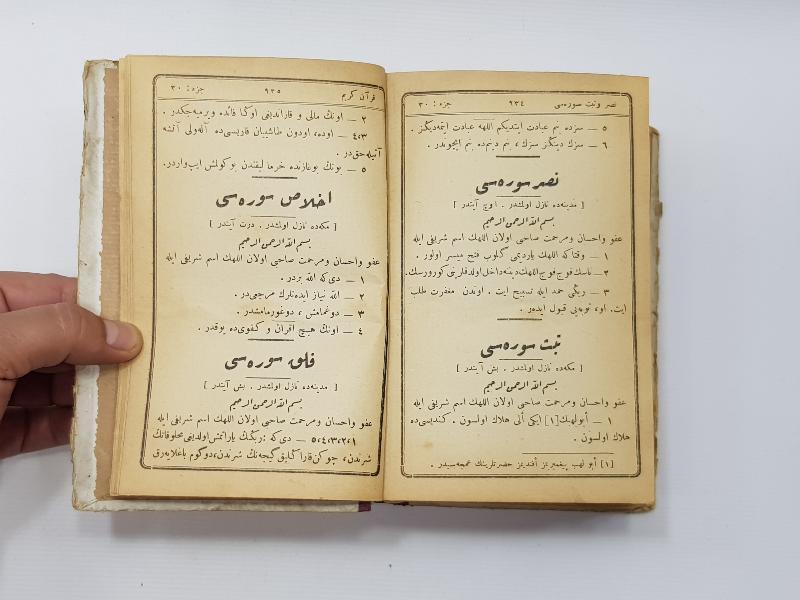 نصر وتبت سوره‌سی ٩٣٤ جزء : ٣٠
٥ — سزده بنم عبادت ایتدیکم اللهه عبادت ایتمه‌دیکز .
٦ — سزك دینکز سزك ، بنم دینم‌ده بنم ایچوندر .
نصر سوره‌سی
[ مدینه‌ده نازل اولمشدر . اوچ آیتدر ]
بسم الله الرحمن الرحیم
عفو واحسان ومرحمت صاحبی اولان اللهك اسم شریفی ایله
١ — وقتاکه اللهك یاردیمی کلوب فتح میسر اولور .
٢ — ناسك فوج فوج اللهك دیننه داخل اولدقلرینی کوررسك.
٣ — ربکی حمد ایله تسبیح ایت . اوندن مغفرت طلب
ایت. او، توبه‌یی قبول ایدەر .
تبت سوره‌سی
[ مکه‌ده نازل اولمشدر . بش آیتدر ]
بسم الله الرحمن الرحیم
عفو واحسان ومرحمت صاحبی اولان اللهك اسم شریفی ایله
١ — أبولهبك[١] ایکی الی هلاك اولسون . کندیسی‌ده
هلاك اولسون .
[١] أبو لهب پیغمبریمز أفندیمز حضرتلرینك عمجه‌سیدر .
قرآن کریم ٩٣٥ جزء : ٣٠
٢ — اونك مالی و قازاندیغی اوکا فائده ویرمیه‌جکدر .
٤،٣ — اوده، اودون طاشییان قاریسی‌ده آله‌ولی آتشه
آتیله‌جقدر .
٥ — بونك بوغازنده خرما لیفندن بوکولش ایپ واردر.
اخلاص سوره‌سی
[ مکه‌ده نازل اولمشدر . درت آیتدر ]
بسم الله الرحمن الرحیم
عفو واحسان ومرحمت صاحبی اولان اللهك اسم شریفی ایله
١ — دی‌که الله بردر .
٢ — الله نیاز ایدەنلرك مرجعی‌در .
٣ — دوغمامش ، دوغورمامشدر .
٤ — اونك هیچ اقران و کفوی‌ده یوقدر .
فلق سوره‌سی
[ مدینه‌ده نازل اولمشدر . بش آیتدر ]
بسم الله الرحمن الرحیم
عفو واحسان ومرحمت صاحبی اولان اللهك اسم شریفی ایله
٥،٤،٣،٢،١ — دی‌که : ربکك یاراتمش اولدیغی مخلوقاتك
شرندن، چوکن قاراکلیق گیجه‌نك شرندن، دوکوم باغلایه‌رق